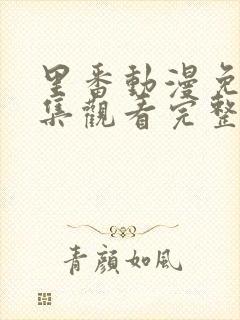 里番動漫免
集觀看完整
青顏如風